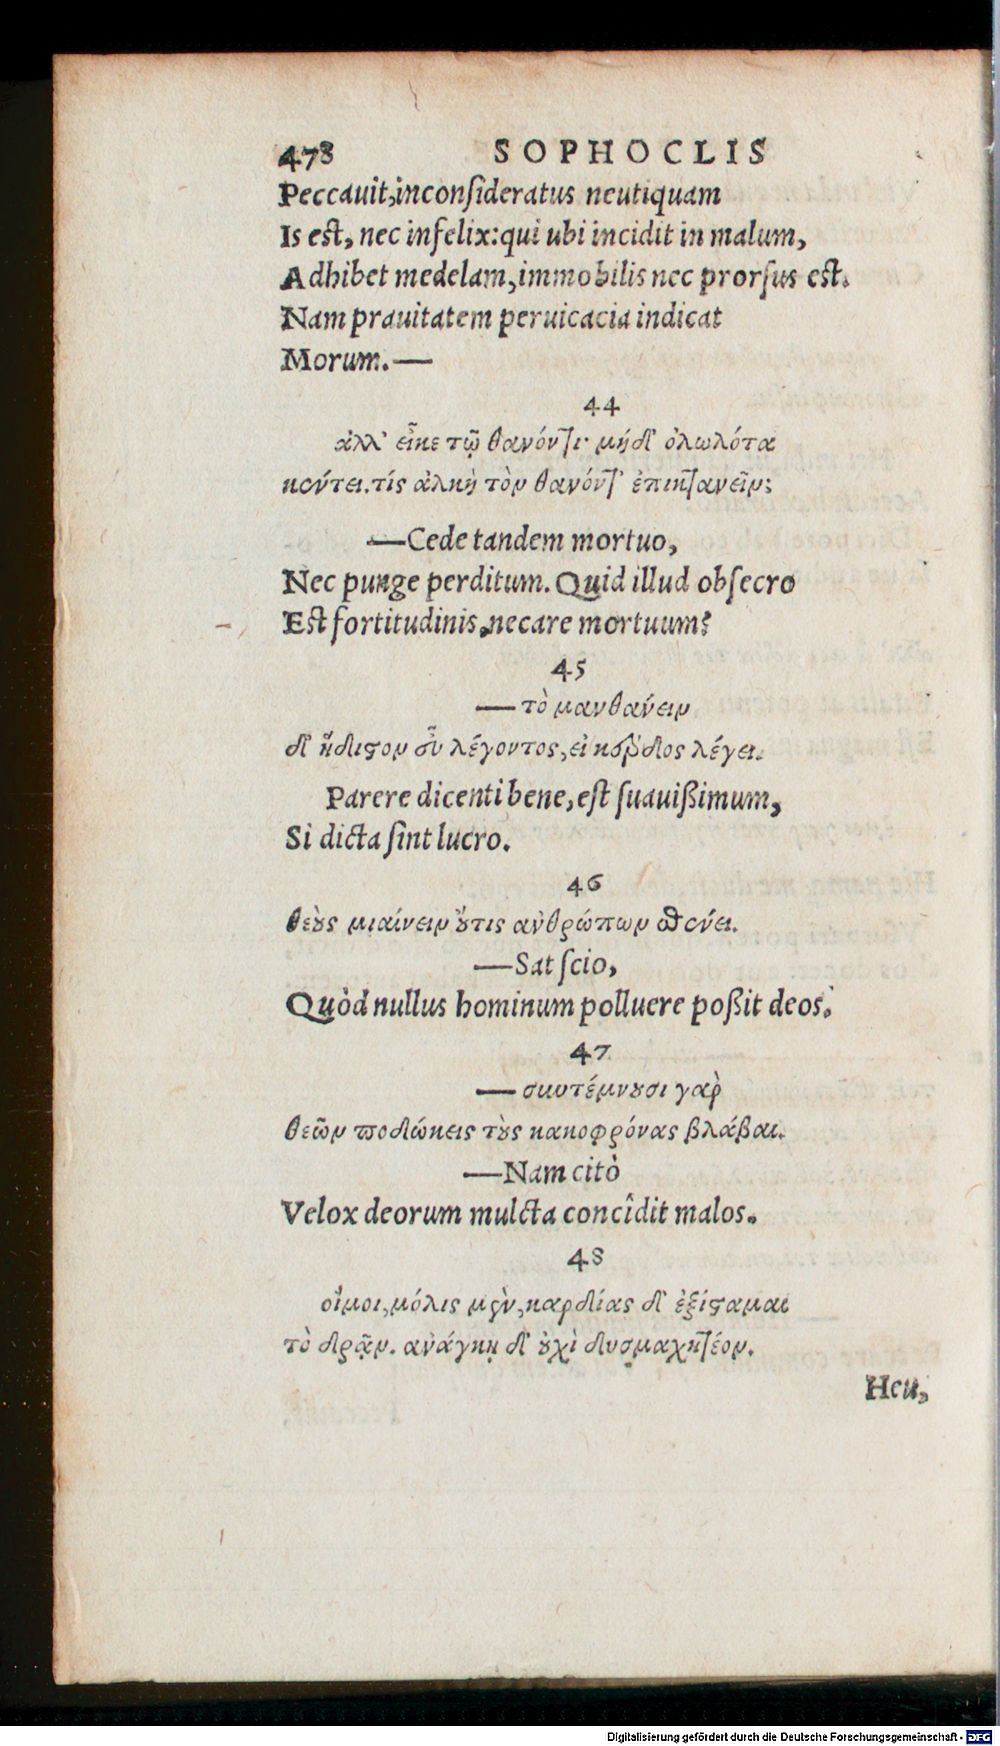 478 SOPHOCLIS
Peccauit, inconsideratus neutiquam
Is est, nec infelix: qui ubi incidit in malum,
Adhibet medelam, immobilis nec prorsus est.
Nam prauitatem peruicacia indicat
Morum.—
44
ἀλλ' εἶκε τῷ θανόντι· μήδ' ὀλωλότα
κέντει. τίς ἀλκὴ τὸν θανόντ' ἐπικτανεῖν;
—Cede tandem mortuo,
Nec punge perditum. Quid illud obsecro
Est fortitudinis, necare mortuum?
45
—τὸ μανθάνειν
δ' ἥδιστον εὖ λέγοντος, εἰ κέρδος λέγει.
Parere dicenti bene, est suauißimum,
Si dicta sint lucro.
46
θεοὺς μιαίνειν οὔτις ἀνθρώπων σθένει.
—Sat scio,
Quòd nullus hominum polluere poßit deos.
47
—συντέμνουσι γὰρ
θεῶν ποδώκεις τοὺς κακοφρόνας βλάβαι.
—Nam citò
Velox deorum mulcta concîdit malos.
48
οἴμοι, μόλις μὲν, καρδίας δ' ἐξίσταμαι
τὸ δρᾷν. ἀνάγκῃ δ' οὐχὶ δυσμαχητέον.
Heu,
Digitalisierung gefördert durch die Deutsche Forschungsgemeinschaft - DFG